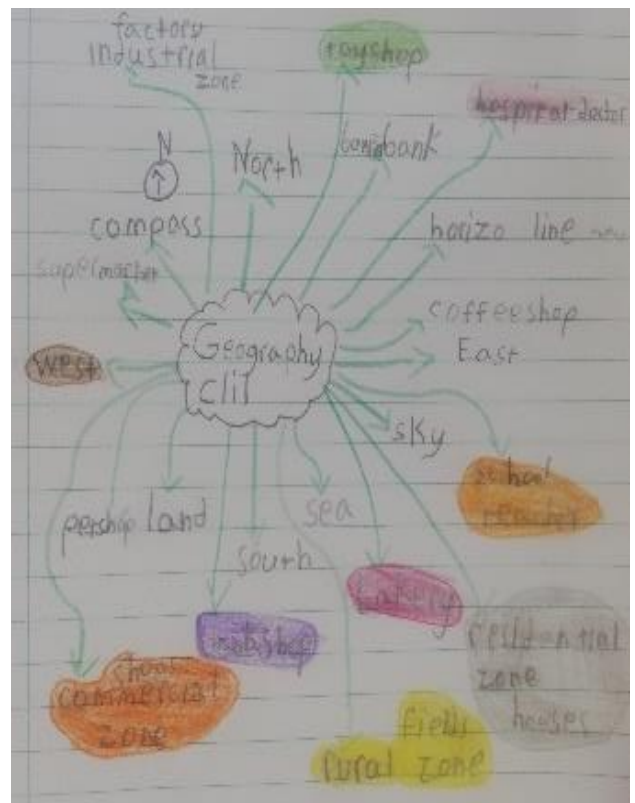 factory
industrial
zone
toyshop
hospital doctor
N
North
bank
compass
horizo line
supermarket
coffeeshop
Geography
clil
East
west
sky
school
teacher
petshop
land
sea
south
bakery
residential
zone
houses
shops
commercial
zone
fields
rural zone